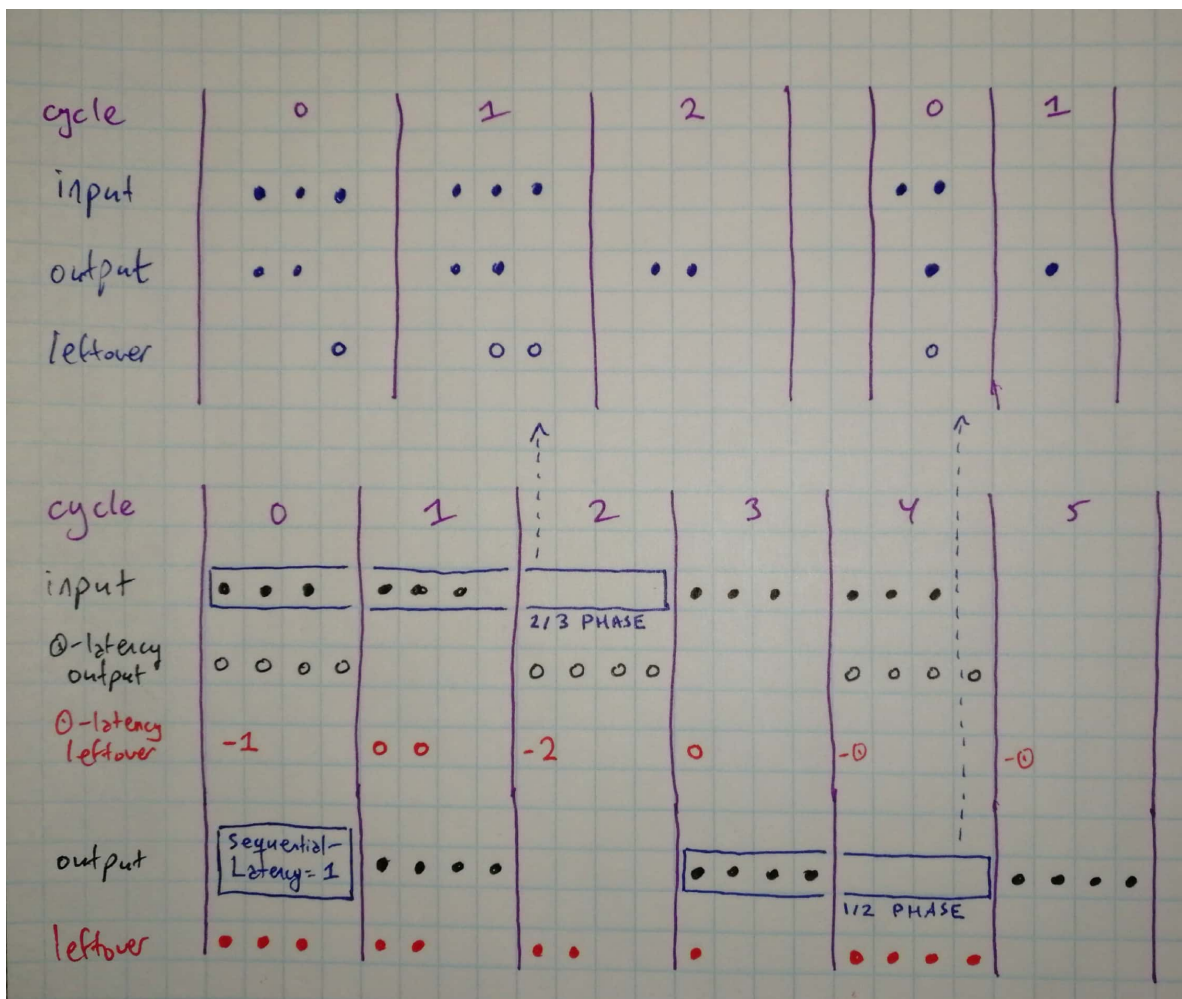 cycle 0 1 2 0 1
input
output
leftover
cycle 0 1 2 3 4 5
input
2/3 PHASE
0-latency
output
0-latency
leftover -1 -2 -0 -0
output Sequential-
Latency= 1
1/2 PHASE
leftover